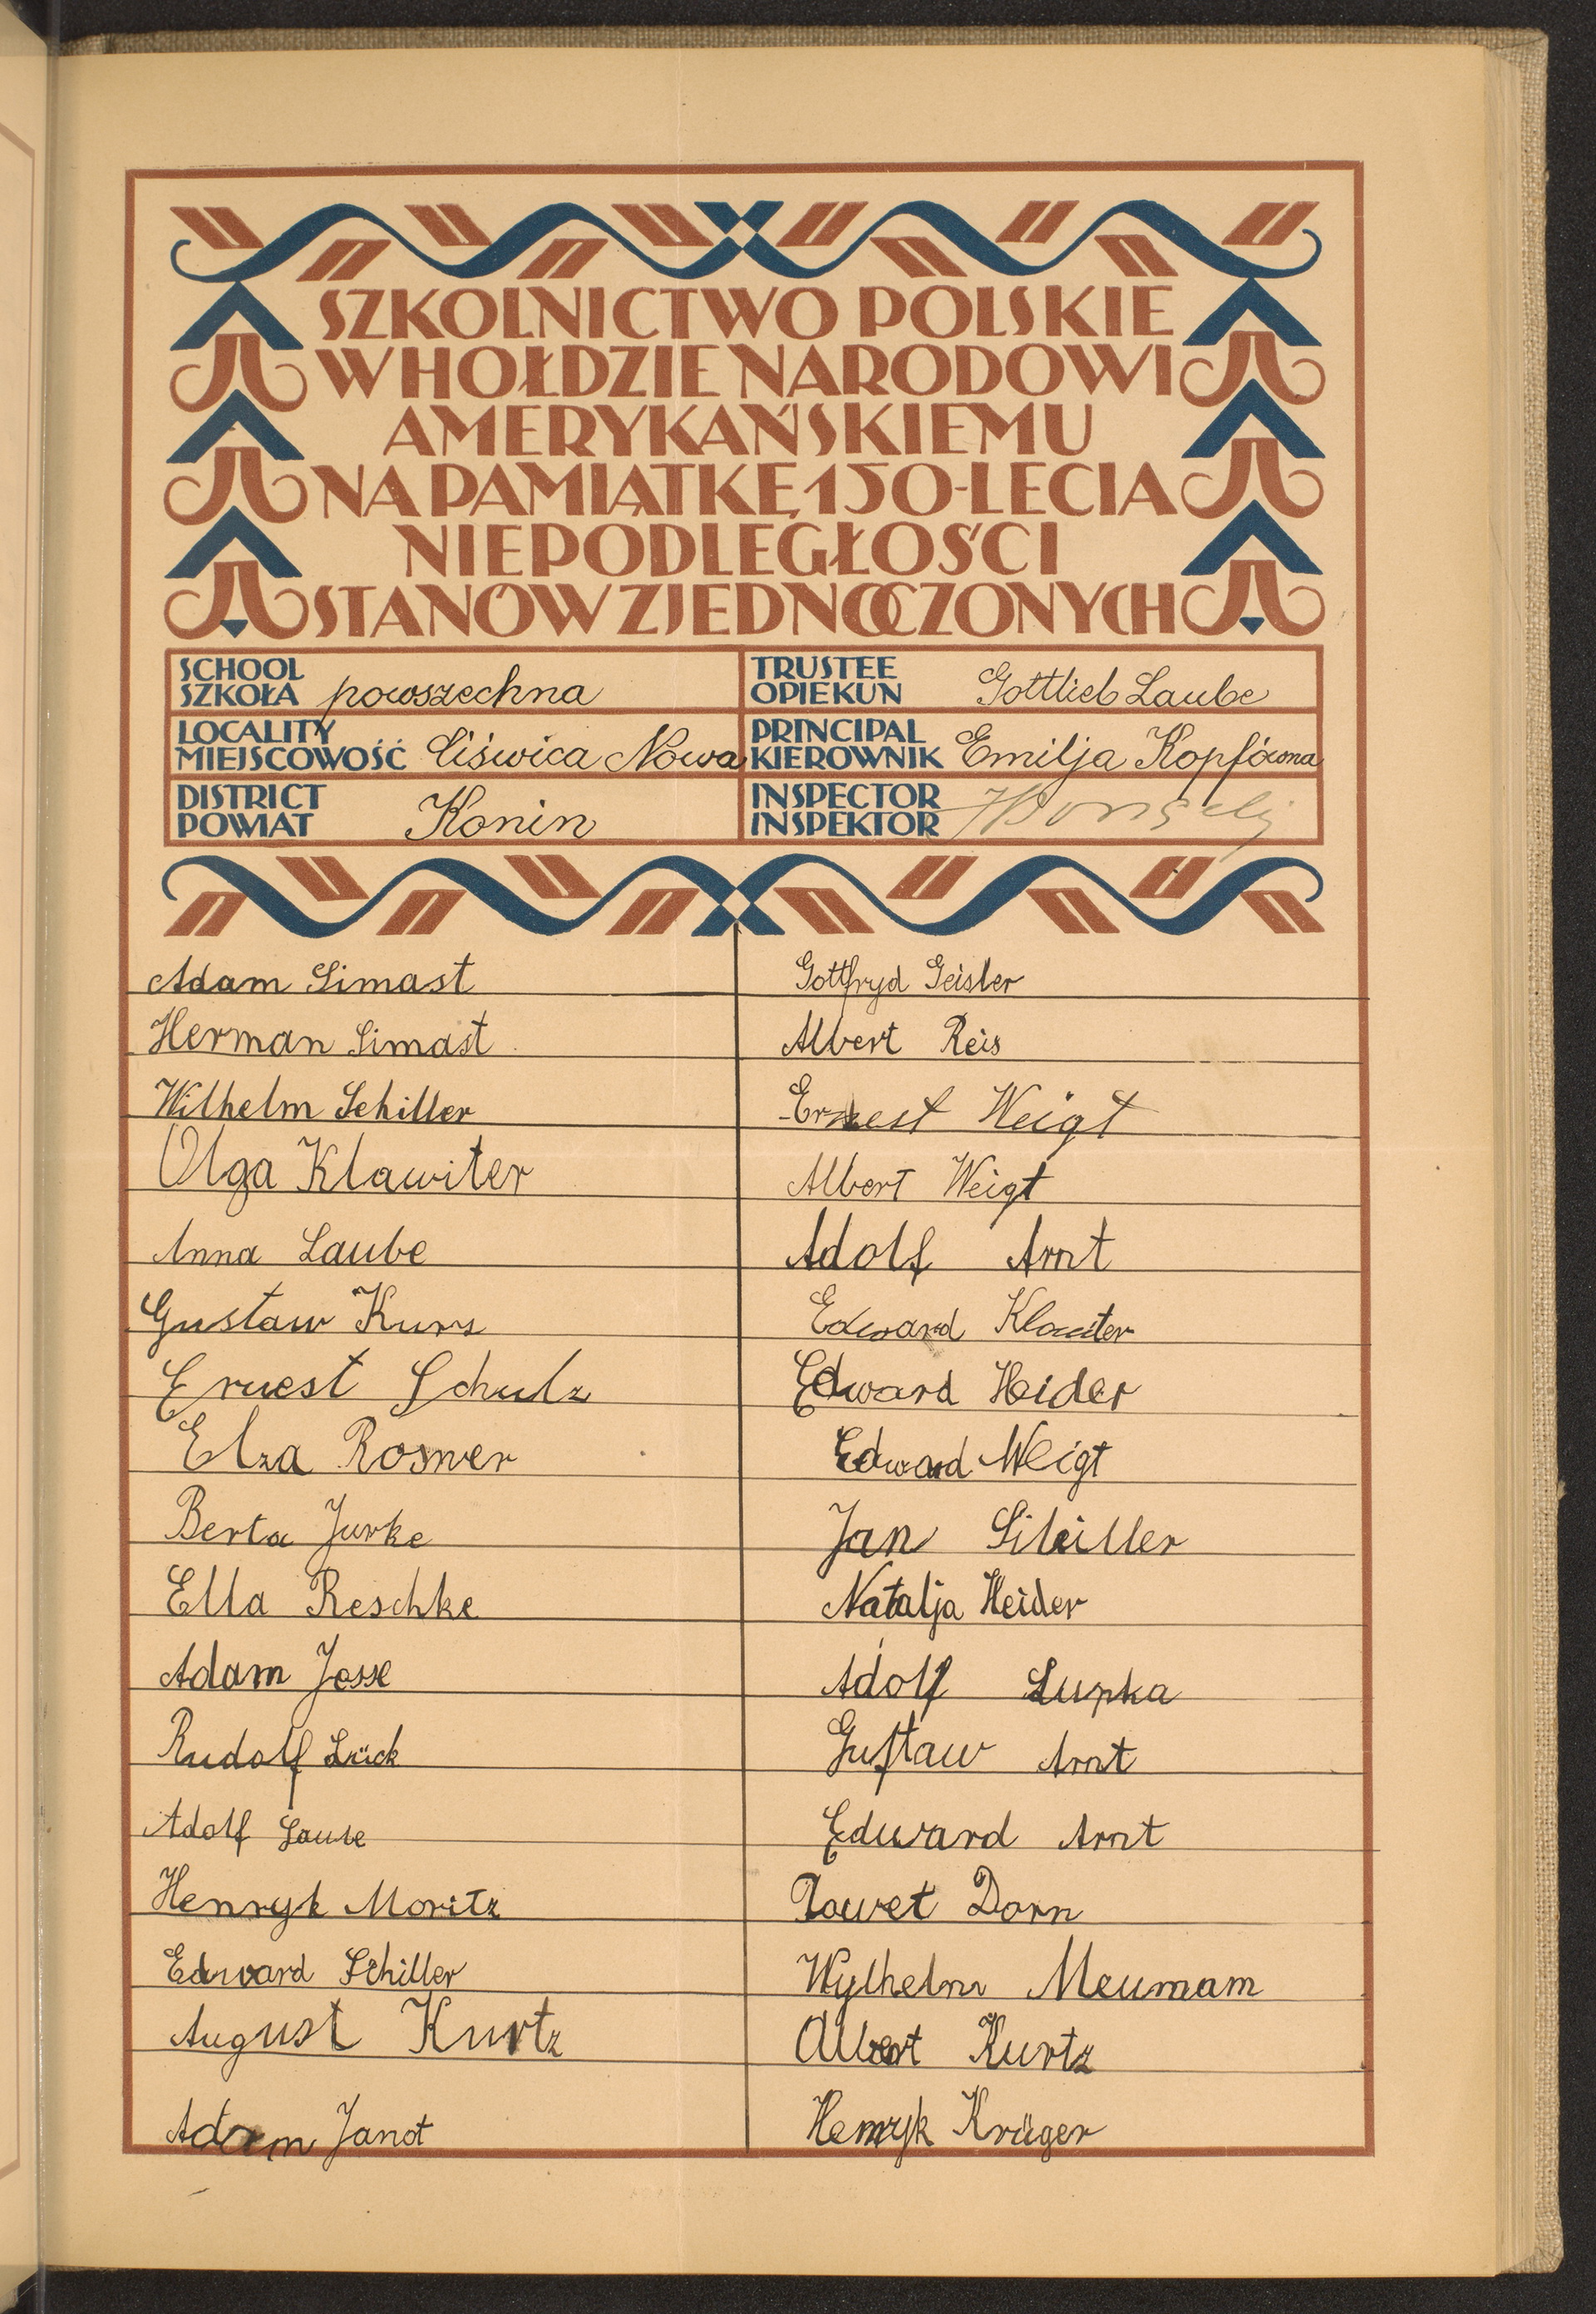 SZKOLNICTWO POLSKIE
W HOŁDZIE NARODOWI
AMERYKAŃSKIEMU
NA PAMIĄTKĘ 150-LECIA
NIEPODLEGŁOŚCI
STANÓW ZJEDNOCZONYCH
SCHOOL
SZKOŁA powszechna
TRUSTEE
OPIEKUN Gottlieb Laube
LOCALITY
MIEJSCOWOŚĆ Liświca Nowa
PRINCIPAL
KIEROWNIK Emilja Kopfówna
DISTRICT
POWIAT Konin
INSPECTOR
INSPEKTOR
Adam Simast
Herman Simast
Wilhelm Schiller
Olga Klawiter
Anna Laube
Gustaw Kurs
Ernest Schulz
Elza Rosner
Berta Jurke
Ella Reschke
Adam Jesse
Rudolf Lück
Adolf Laube
Henryk Moritz
Edward Schiller
August Kurtz
Adam Janot
Gottfryd Geisler
Albert Reis
Ernest Weigt
Albert Weigt
Adolf Arnt
Edward Klawiter
Edward Heider
Edward Weigt
Jan
Natalja Heider
Adolf Lupka
Gustaw Arnt
Edward Arnt
Paweł Dorn
Wylhelm Neumam
Albert Kurtz
Henryk Krüger